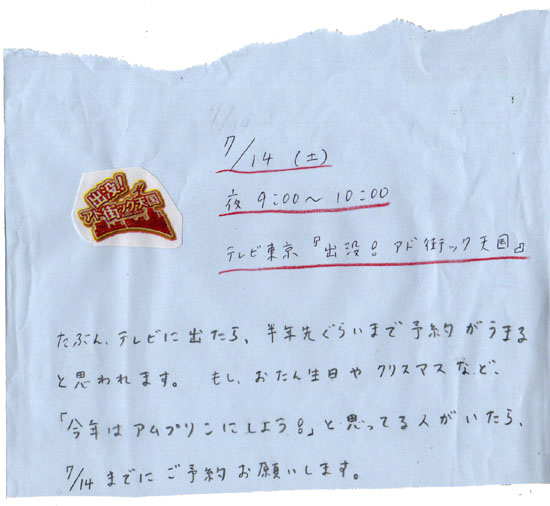 7/14 (土)
夜 9:00〜10:00
出没!
アド街ック天国
テレビ東京『出没!アド街ック天国』
たぶん、テレビに出たら、半年先ぐらいまで予約がうまる
と思われます。 もし、おたん生日や クリスマスなど、
「今年は アムプリンにしよう!」と思ってる人がいたら、
7/14までにご予約お願いします。